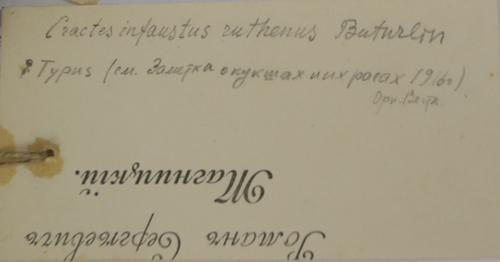 Cractes infaustus ruthenus Buturlin
Typus (см. Заметка о кукшах и их расах 1916 г)
Орн. Вестн.
Романъ Сергѣевичъ
Магницкій.